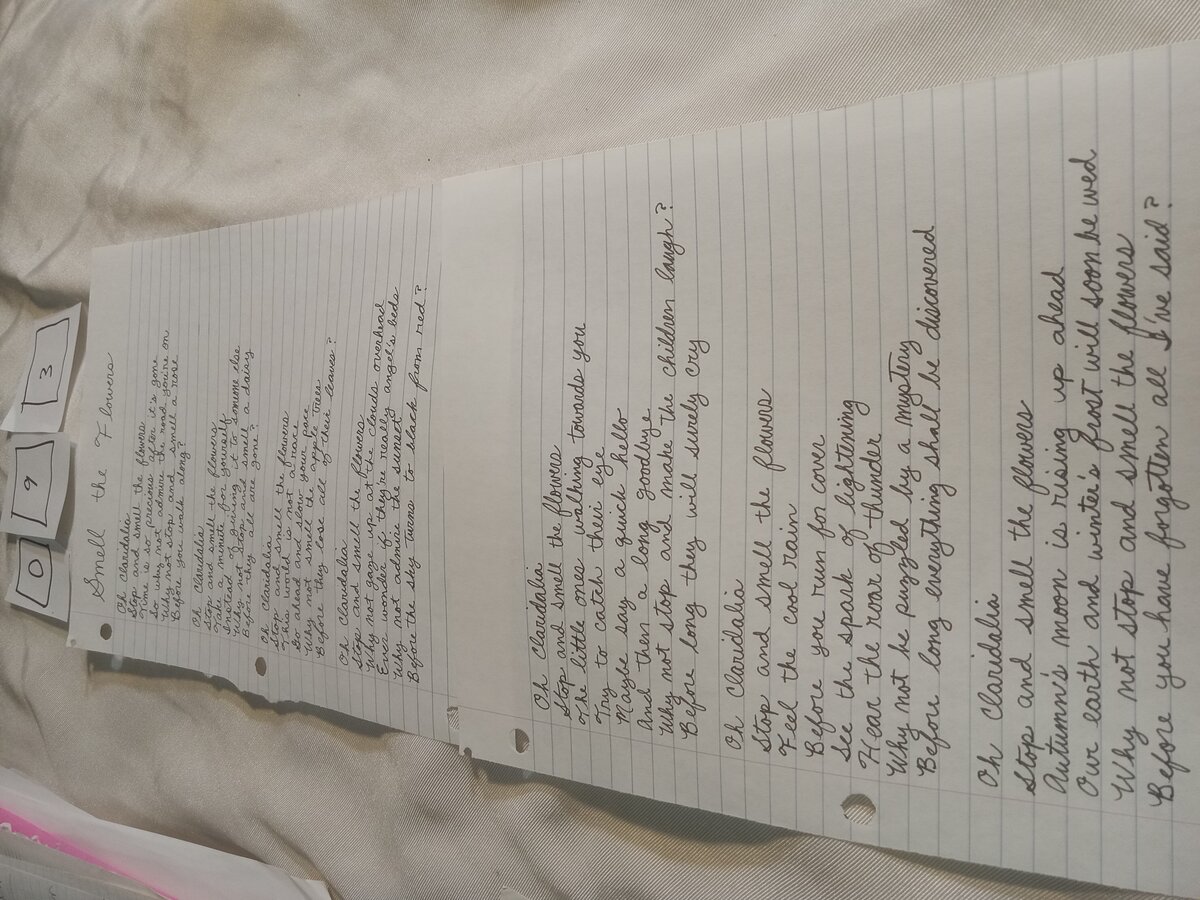 0 9 3
Smell the Flowers
Oh Claridalia
Stop and smell the flowers
Time is so precious after it's gone
So why not admire the road you're on
Why not stop and smell a rose
Before you walk along?
Oh Claridalia
Stop and smell the flowers
Take a minute for yourself
Instead of giving it to someone else
Why not stop and smell a daisy
Before they all are gone?
Oh Claridalia
Stop and smell the flowers
This world is not a race
Go ahead and slow your pace
Why not smell the apple trees
Before they lose all of their leaves?
Oh Claridalia
Stop and smell the flowers
Why not gaze up at the clouds overhead
Ever wonder if they're really angel's beds
Why not admire the sunset
Before the sky turns to black from red?
Oh Claridalia
Stop and smell the flowers
The little ones walking towards you
Try to catch their eye
Maybe say a quick hello
And then a long goodbye
Why not stop and make the children laugh?
Before long they will surely cry
Oh Claridalia
Stop and smell the flowers
Feel the cool rain
Before you run for cover
See the spark of lightening
Hear the roar of thunder
Why not be puzzled by a mystery
Before long everything shall be discovered
Oh Claridalia
Stop and smell the flowers
Autumn's moon is rising up ahead
Our earth and winter's frost will soon be wed
Why not stop and smell the flowers
Before you have forgotten all I've said?